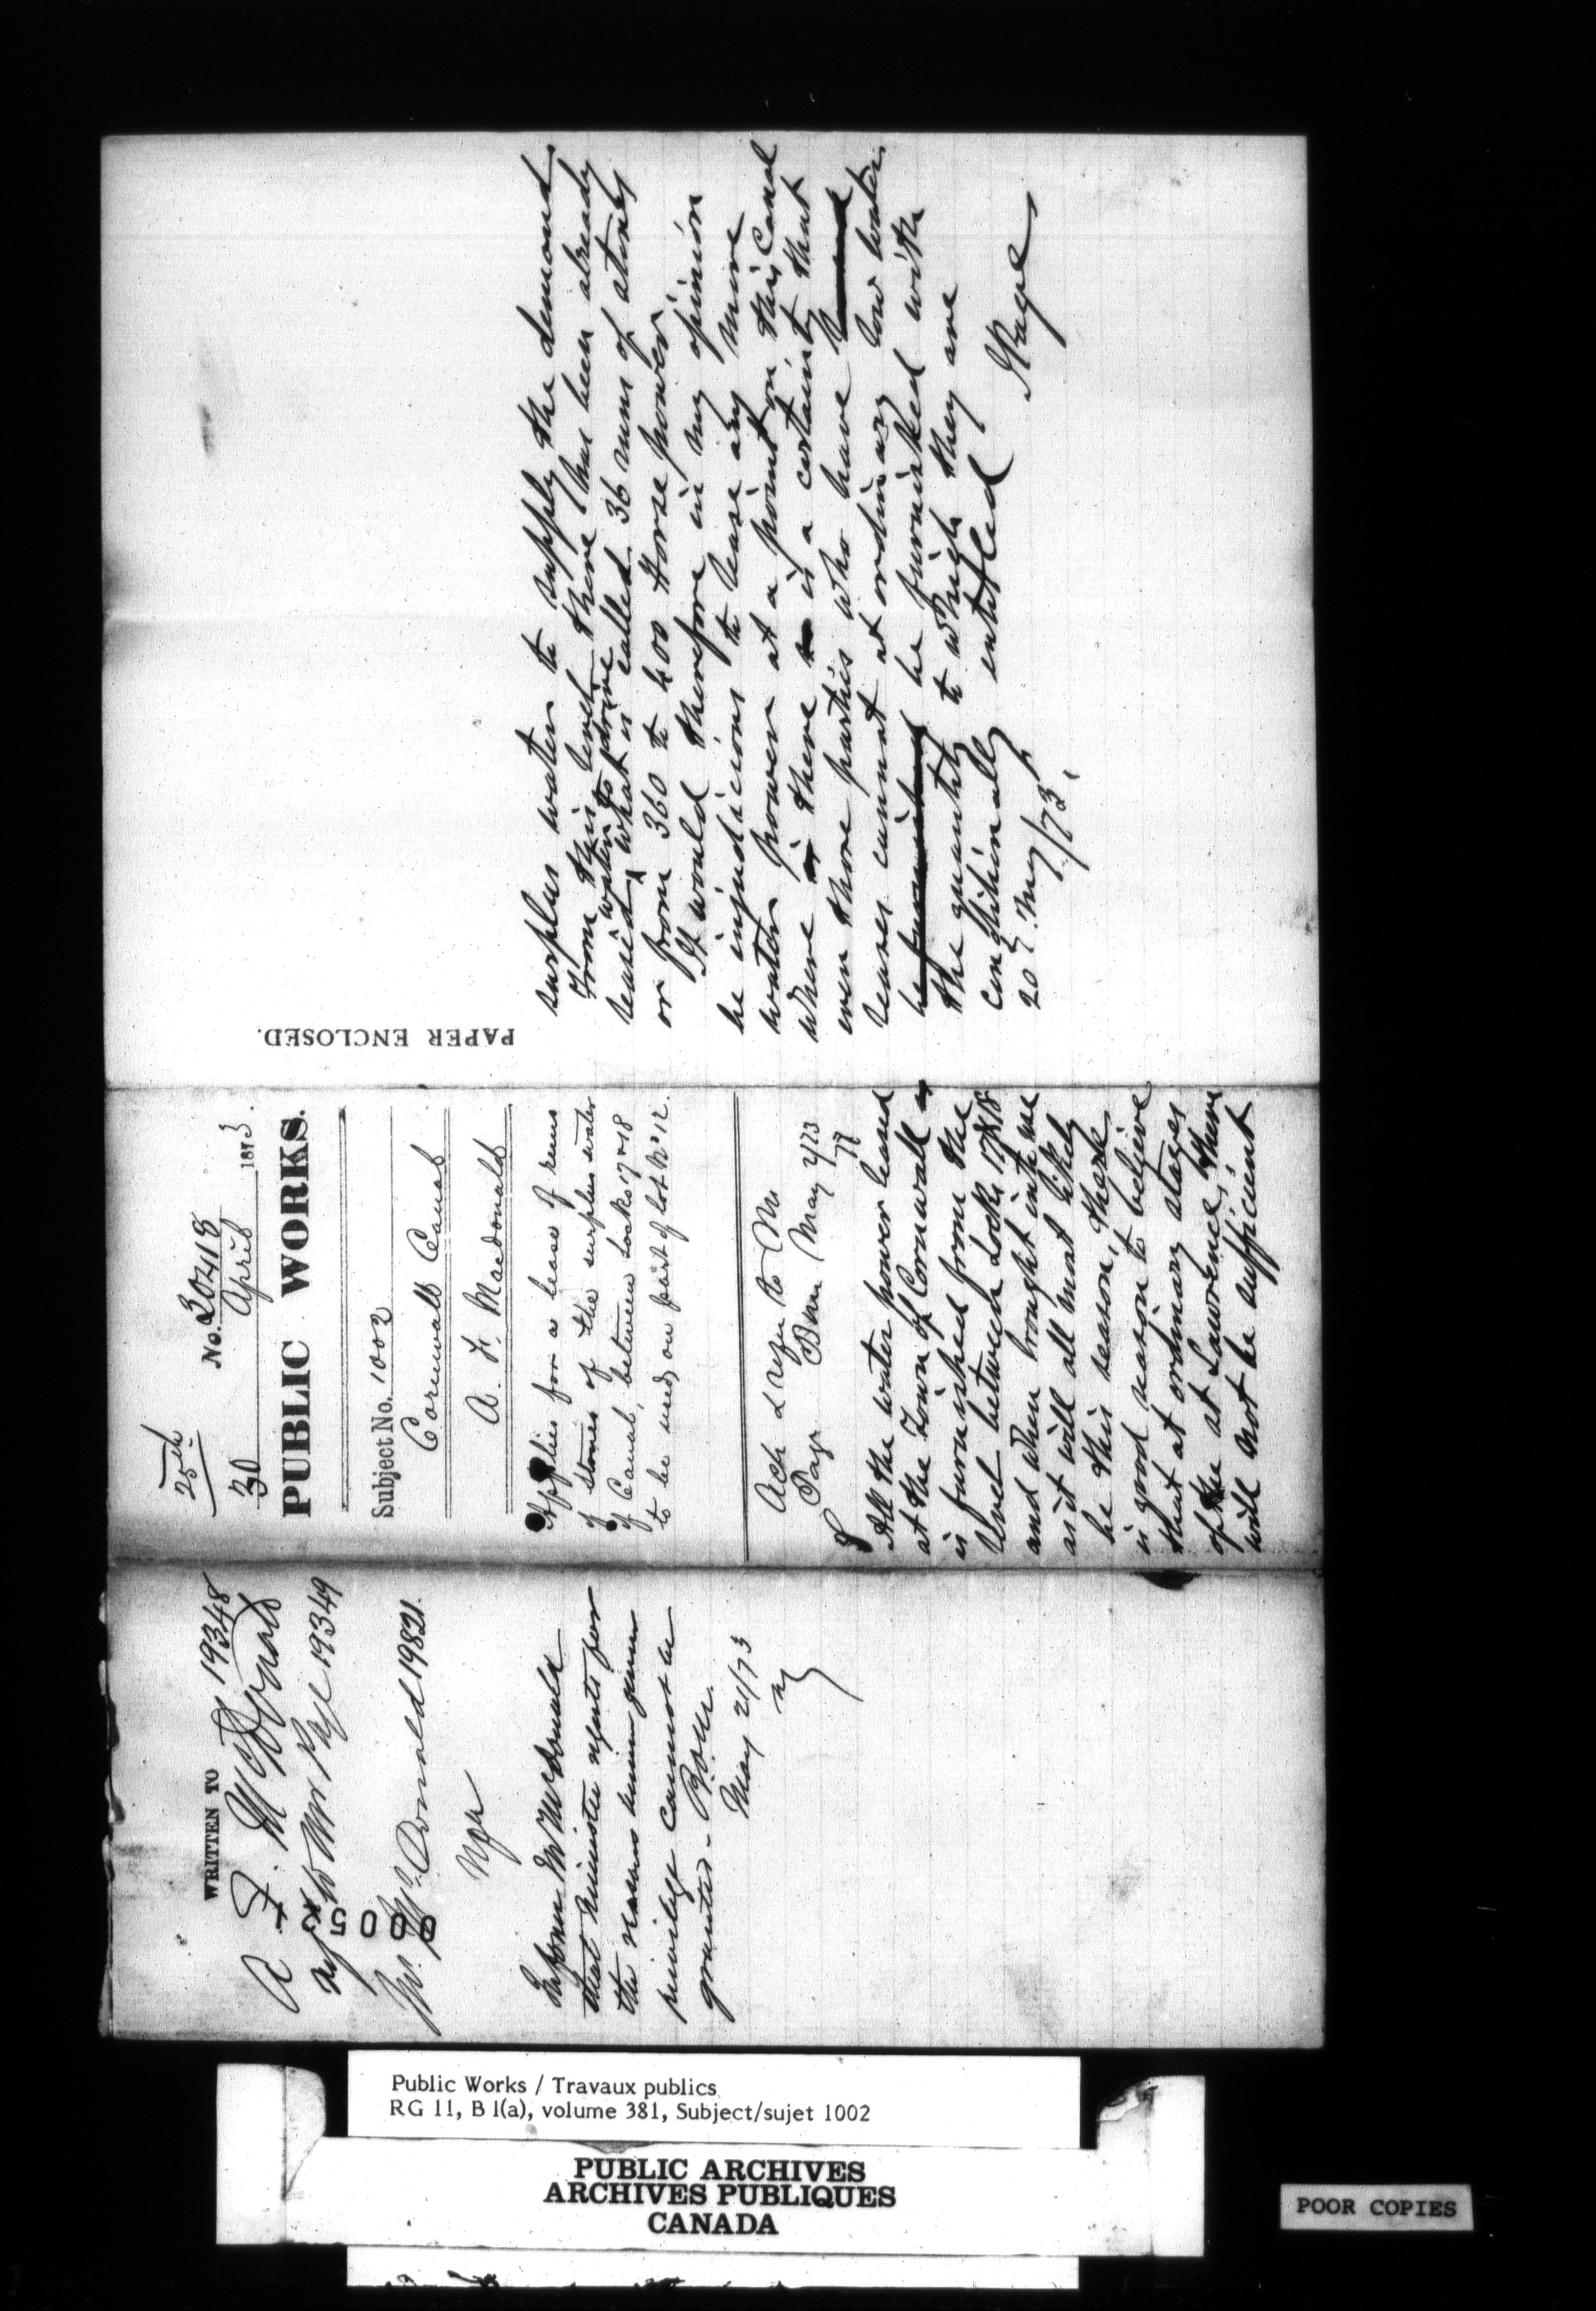 WRITTEN TO
A. F. McDonald 19348
Mr Page 19349
Mr McDonald 19821.
Inform Mr McDonald
that Minister regrets for
the reasons given
privilege cannot be
granted.
May 21/73
00051
25th
No. 30418
30 April 1873.
PUBLIC WORKS.
Subject No. 1002
Cornwall Canal
A. F. Macdonald
Applies for a lease of runs
of stones of the surplus water
of Canal, between Locks 17 & 18
to be used on part of Lot No 12.
Ack & refer to Mr
Page May 2/73
All the water power leased
at the Town of Cornwall
is furnished from the
level between Locks 17 & 18
and when brought into use
as it will all most likely
be this season, there
is good reason to believe
that at ordinary stages
of the St Lawrence, there
will not be sufficient
PAPER ENCLOSED.
surplus water to supply the demand.
From this level there has been already
leased water to drive what is called 36 runs of stones
or from 360 to 400 Horse power.
It would therefore in my opinion
be injudicious to lease any more
water power at a point on this Canal
where there is a certainty that
even those parties who have
leases cannot at ordinary low water
be furnished with
the quantity to which they are
conditionally entitled
20th May/73. J Page
Public Works / Travaux publics
RG 11, B 1(a), volume 381, Subject/sujet 1002
PUBLIC ARCHIVES
ARCHIVES PUBLIQUES
CANADA
POOR COPIES